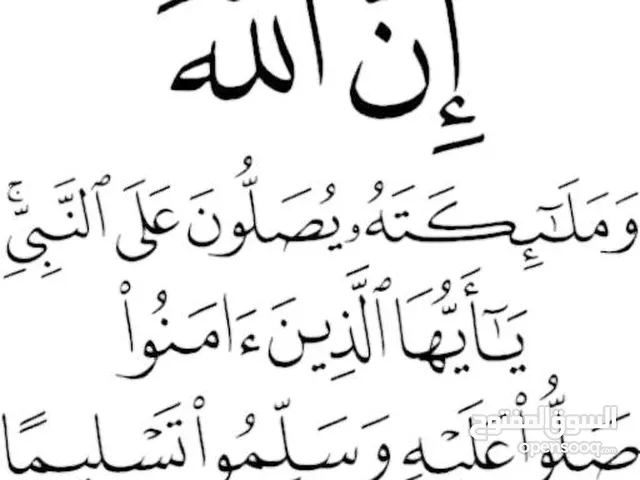 إِنَّ اللَّهَ
وَمَلَٰٓئِكَتَهُۥ يُصَلُّونَ عَلَى ٱلنَّبِيِّۚ
يَٰٓأَيُّهَا ٱلَّذِينَ ءَامَنُوا۟
صَلُّوا۟ عَلَيْهِ وَسَلِّمُوا۟ تَسْلِيمًا
السوق المفتوح
opensooq.com